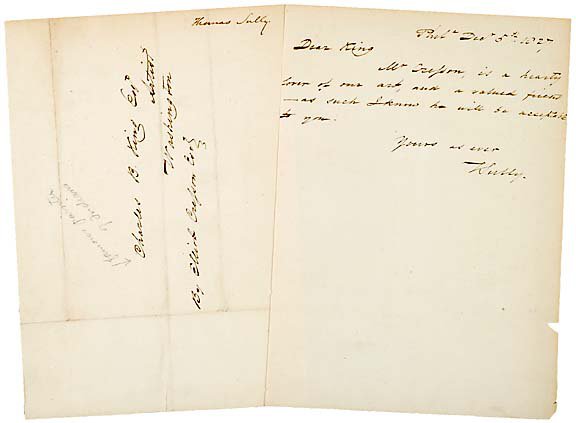 Thomas Sully.
Charles B King Esqr
Artist
Washington
By Elliott Cresson Esqr
famous painter
of Indians
Phila Decr 5th 1827
Dear King
Mr Cresson, is a hearty
lover of our art, and a valued friend
—as such I know he will be acceptable
to you.
Yours as ever
TSully.